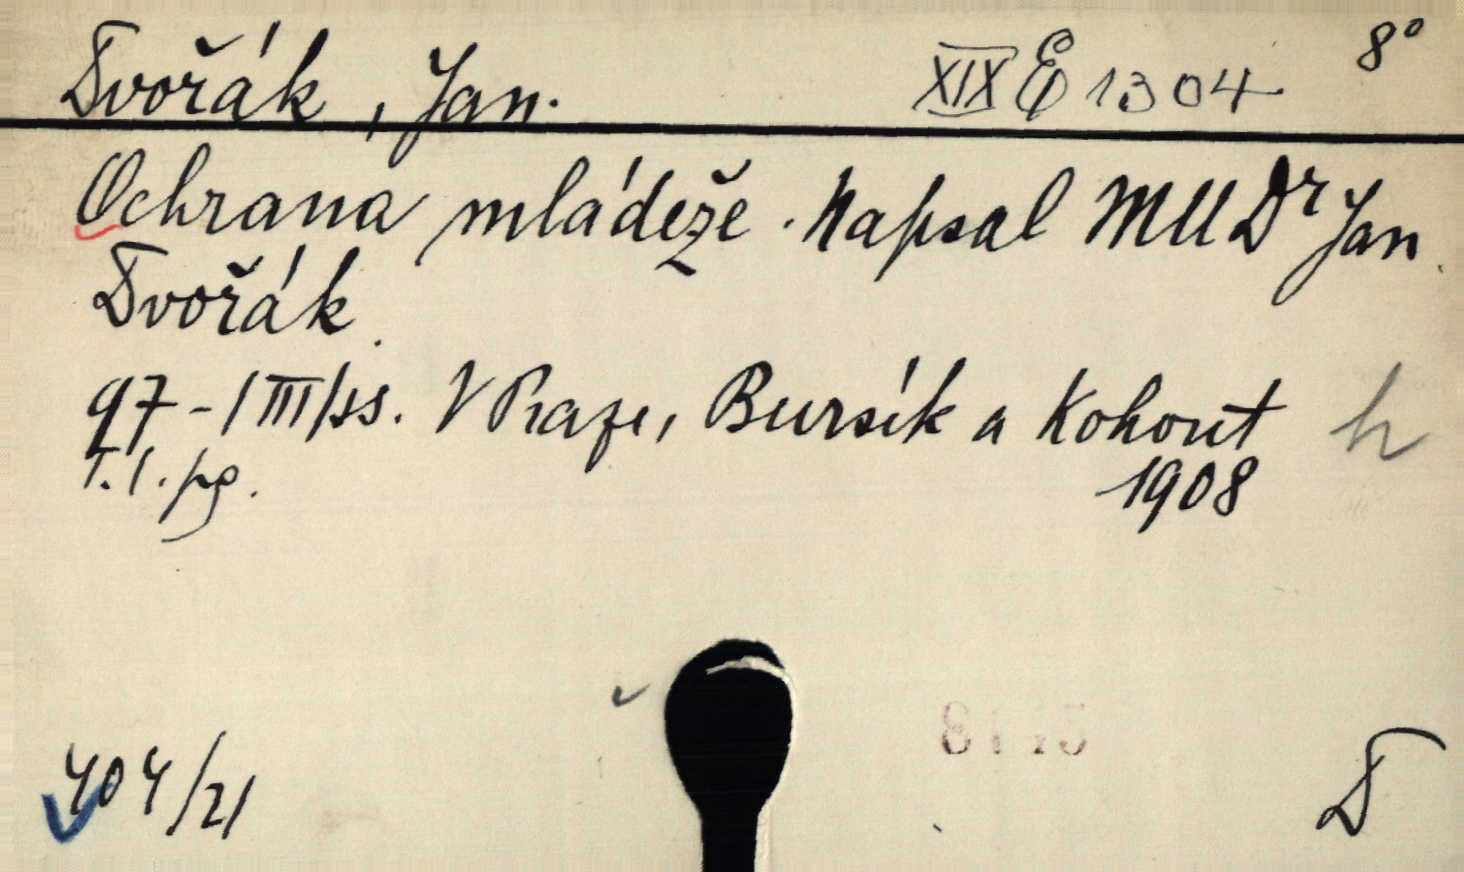 Dvořák, Jan. XIX E 1304 8°
Ochrana mládeže. Napsal MUDr Jan
Dvořák.
97-/III/ss. V Praze, Bursík a Kohout h
T.l.pg. 1908
404/21 D